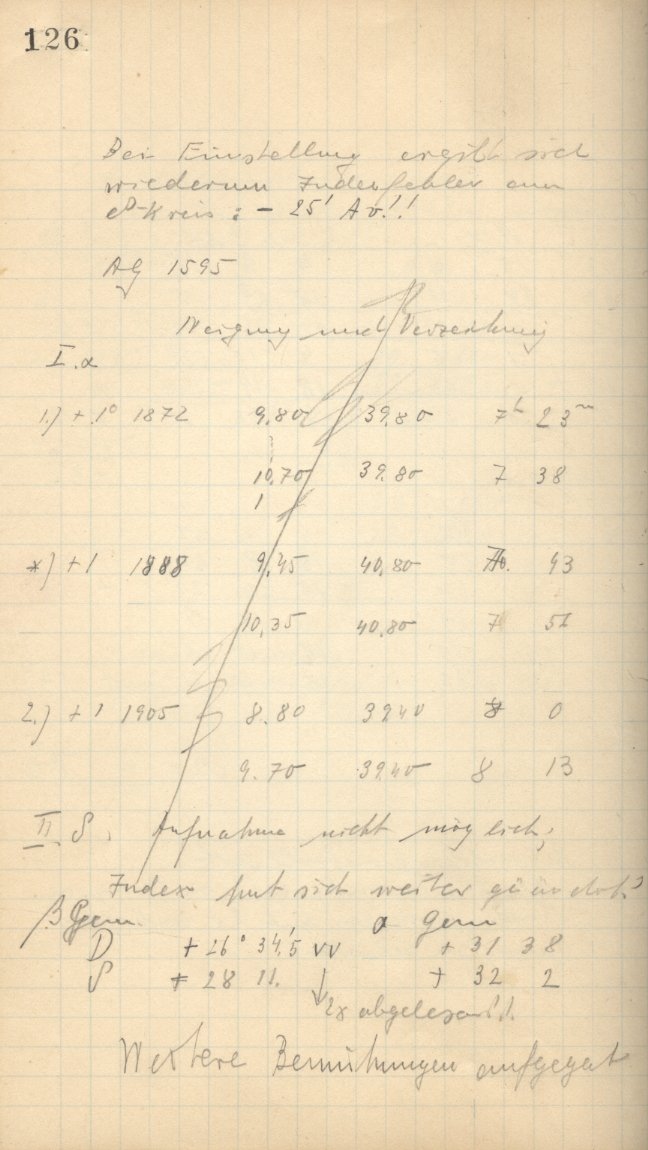 126
Bei Einstellung ergibt sich
wiederum Indexfehler am
δ-Kreis: - 25' Av!!
AG 1595
Neigung und Verzerrung
I. α
1.) + 1° 1872 9,80 39,80 7h 23m
10,70 39,80 7 38
1
*) + 1 1888 9,45 40,80 43
10,35 40,80 7 51
2.) + 1 1905 8,80 39,40 8 0
9,70 39,40 8 13
II. δ. Aufnahme nicht möglich;
Index hat sich weiter geändert
β Gem. α Gem
D + 26° 34,'5 vv + 31 38
δ + 28 11. + 32 2
2x abgelesen!!
Weitere Bemühungen aufgegeb